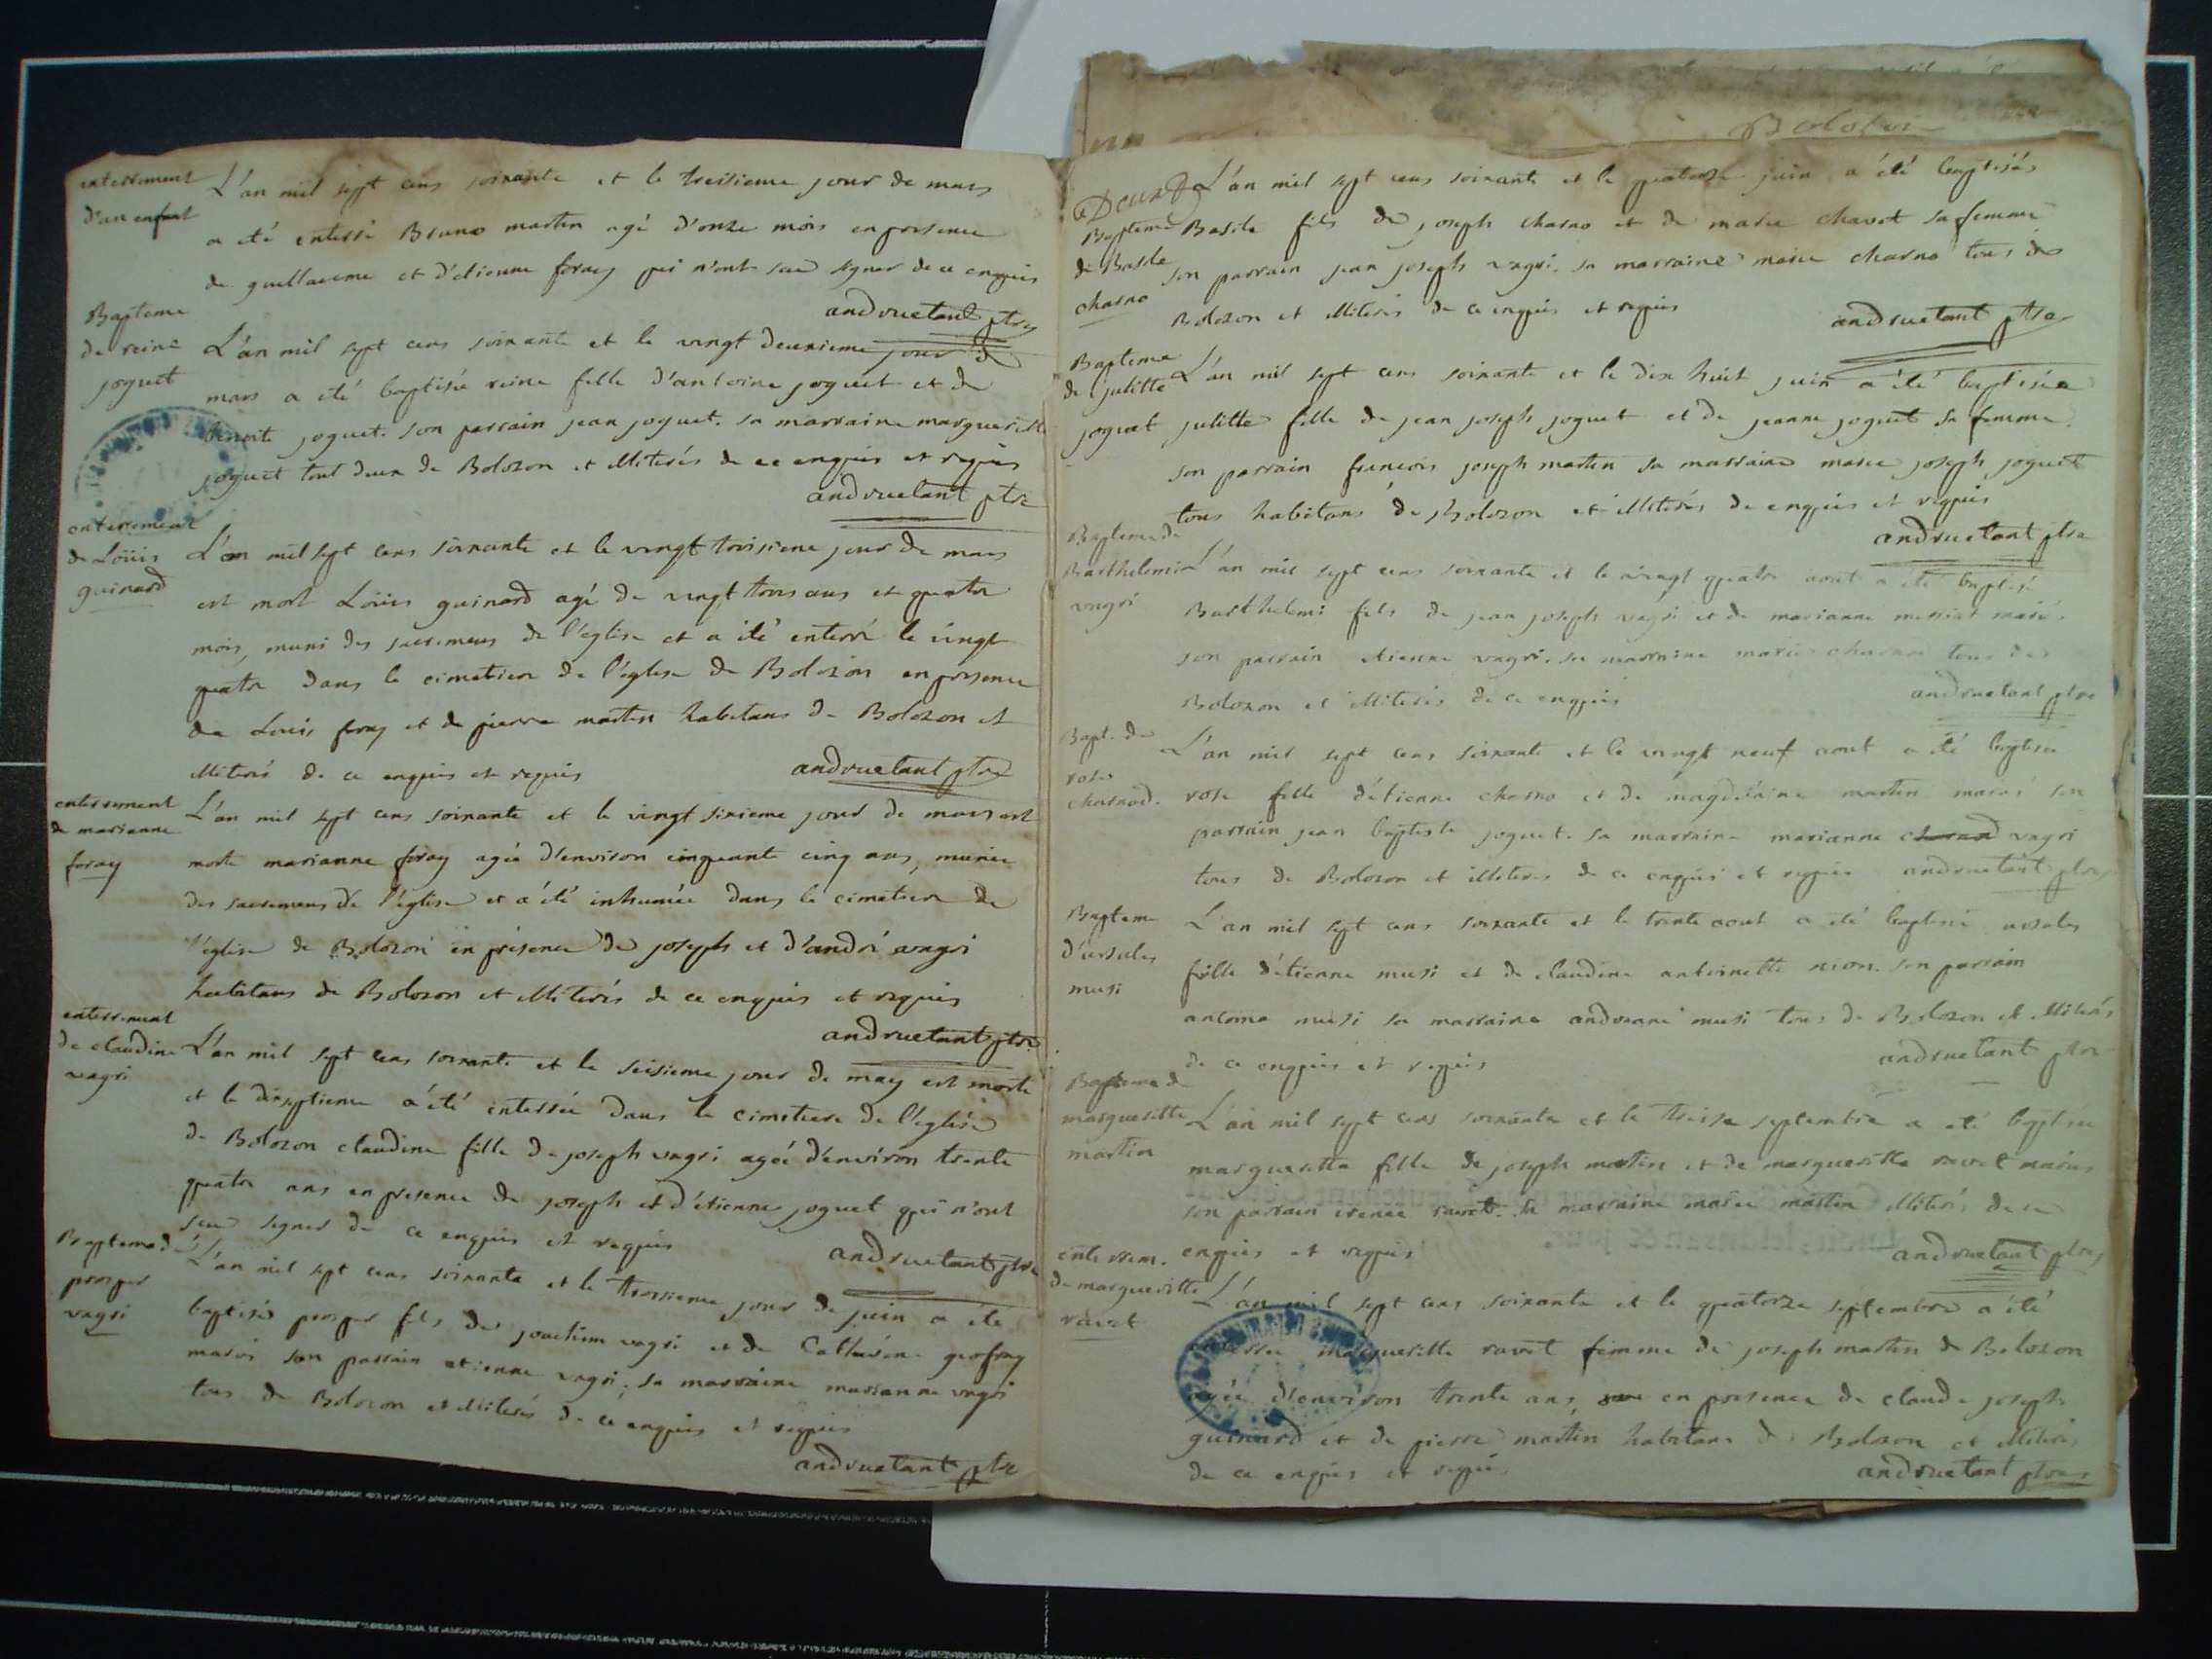 enterrement
d'un enfant
L'an mil sept cens soixante et le treisieme jour de mars
a eté enterré Bruno martin agé d'onze mois en presence
de guillaume et d'etienne foray qui n'ont sceu signer de ce enquis
andruetant ptre
Bapteme
de reine
joguet
L'an mil sept cens soixante et le vingt deuxieme jour de
mars a eté baptisée reine fille d'antoine joguet et de
benoite joguet. son parrain jean joguet. sa marraine margueritte
joguet tout deux de Bolozon et illiterés de ce enquis et requis
andruetant ptre
enterrement
de Loüis
guinard
L'an mil sept cens soixante et le vingt troisieme jour de mars
est mort Loüis guinard agé de vingt trois ans et quatre
mois, muni des sacremens de l'église et a été enterré le vingt
quatre dans le cimetiere de l'église de Bolozon en presence
de Louis foray et de pierre martin habitans de Bolozon et
illiterés de ce enquis et requis
andruetant ptre
enterrement
de marianne
foray
L'an mil sept cens soixante et le vingt sixieme jour de mars est
morte marianne foray agée d'environ cinquante cinq ans, munie
des sacremens de l'église et a été inhumée dans le cimetiere de
l'église de Bolozon en présence de joseph et d'andré vagri
habitans de Bolozon et illiterés de ce enquis et requis
andruetant ptre
enterrement
de claudine
vagri
L'an mil sept cens soixante et le seisieme jour de may est morte
et le dixseptieme a été enterrée dans le cimetiere de l'église
de Bolozon claudine fille de joseph vagri agée d'environ trente
quatre ans en presence de joseph et d'étienne joguet qui n'ont
sceu signer de ce enquis et requis
andruetant ptre
Bapteme de
prosper
vagri
L'an mil sept cens soixante et le troisieme jour de juin a été
baptisé prosper fils de joachim vagri et de Catherine geofray
mariés son parrain etienne vagri, sa marraine marianne vagri
tous de Bolozon et illiterés de ce enquis et requis
andruetant ptre
Bolozon
Deux
Bapteme
de Basile
charno
L'an mil sept cens soixante et le quatorze juin a été baptisés
Basile fils de joseph charno et de marie chavet sa femme
son parrain jean joseph vagri. sa marraine marie charno tous de
Bolozon et illiterés de ce enquis et requis
andruetant ptre
Bapteme
de julitte
joguet
L'an mil sept cens soixante et le dix huit juin a été baptisée
julitte fille de jean joseph joguet et de jeanne joguet sa femme.
son parrain francois joseph martin sa marraine marie joseph joguet
tous habitans de Bolozon et illiterés de enquis et requis
andruetant ptre
Bapteme de
Barthelemi
vagri
L'an mil sept cens soixante et le vingt quatre aout a été baptisé
Barthelemi fils de jean joseph vagri et de marianne messiat mariés
son parrain etienne vagri. sa marraine marie charno tous de
Bolozon et illiterés de ce enquis
andruetant ptre
Bapt. de
rose
charnod.
L'an mil sept cens soixante et le vingt neuf aout a été baptisée
rose fille d'étienne charno et de magdelaine martin mariés son
parrain jean baptiste joguet. sa marraine marianne vagri
tous de Bolozon et illiterés de ce enquis et requis andruetant ptre
Bapteme
d'ursules
musi
L'an mil sept cens soixante et le trente aout a été baptisé ursules
fille d'étienne musi et de claudine antoinette nion. son parrain
antoine musi sa marraine musi tous de Bolozon et illiterés
de ce enquis et requis
andruetant ptre
Bapteme de
margueritte
martin
L'an mil sept cens soixante et le treise septembre a été baptisée
margueritte fille de joseph martin et de margueritte ravet mariés
son parrain irenée ravet. sa marraine marie martin illiterés de ce
enquis et requis
andruetant ptre
enterrem.
de margueritte
ravet
L'an mil sept cens soixante et le quatorze septembre a été
enterrée margueritte ravet femme de joseph martin de Bolozon
agée d'environ trente ans, en presence de claude joseph
guinard et de pierre martin habitans de Bolozon et illiterés
de ce enquis et requis
andruetant ptre